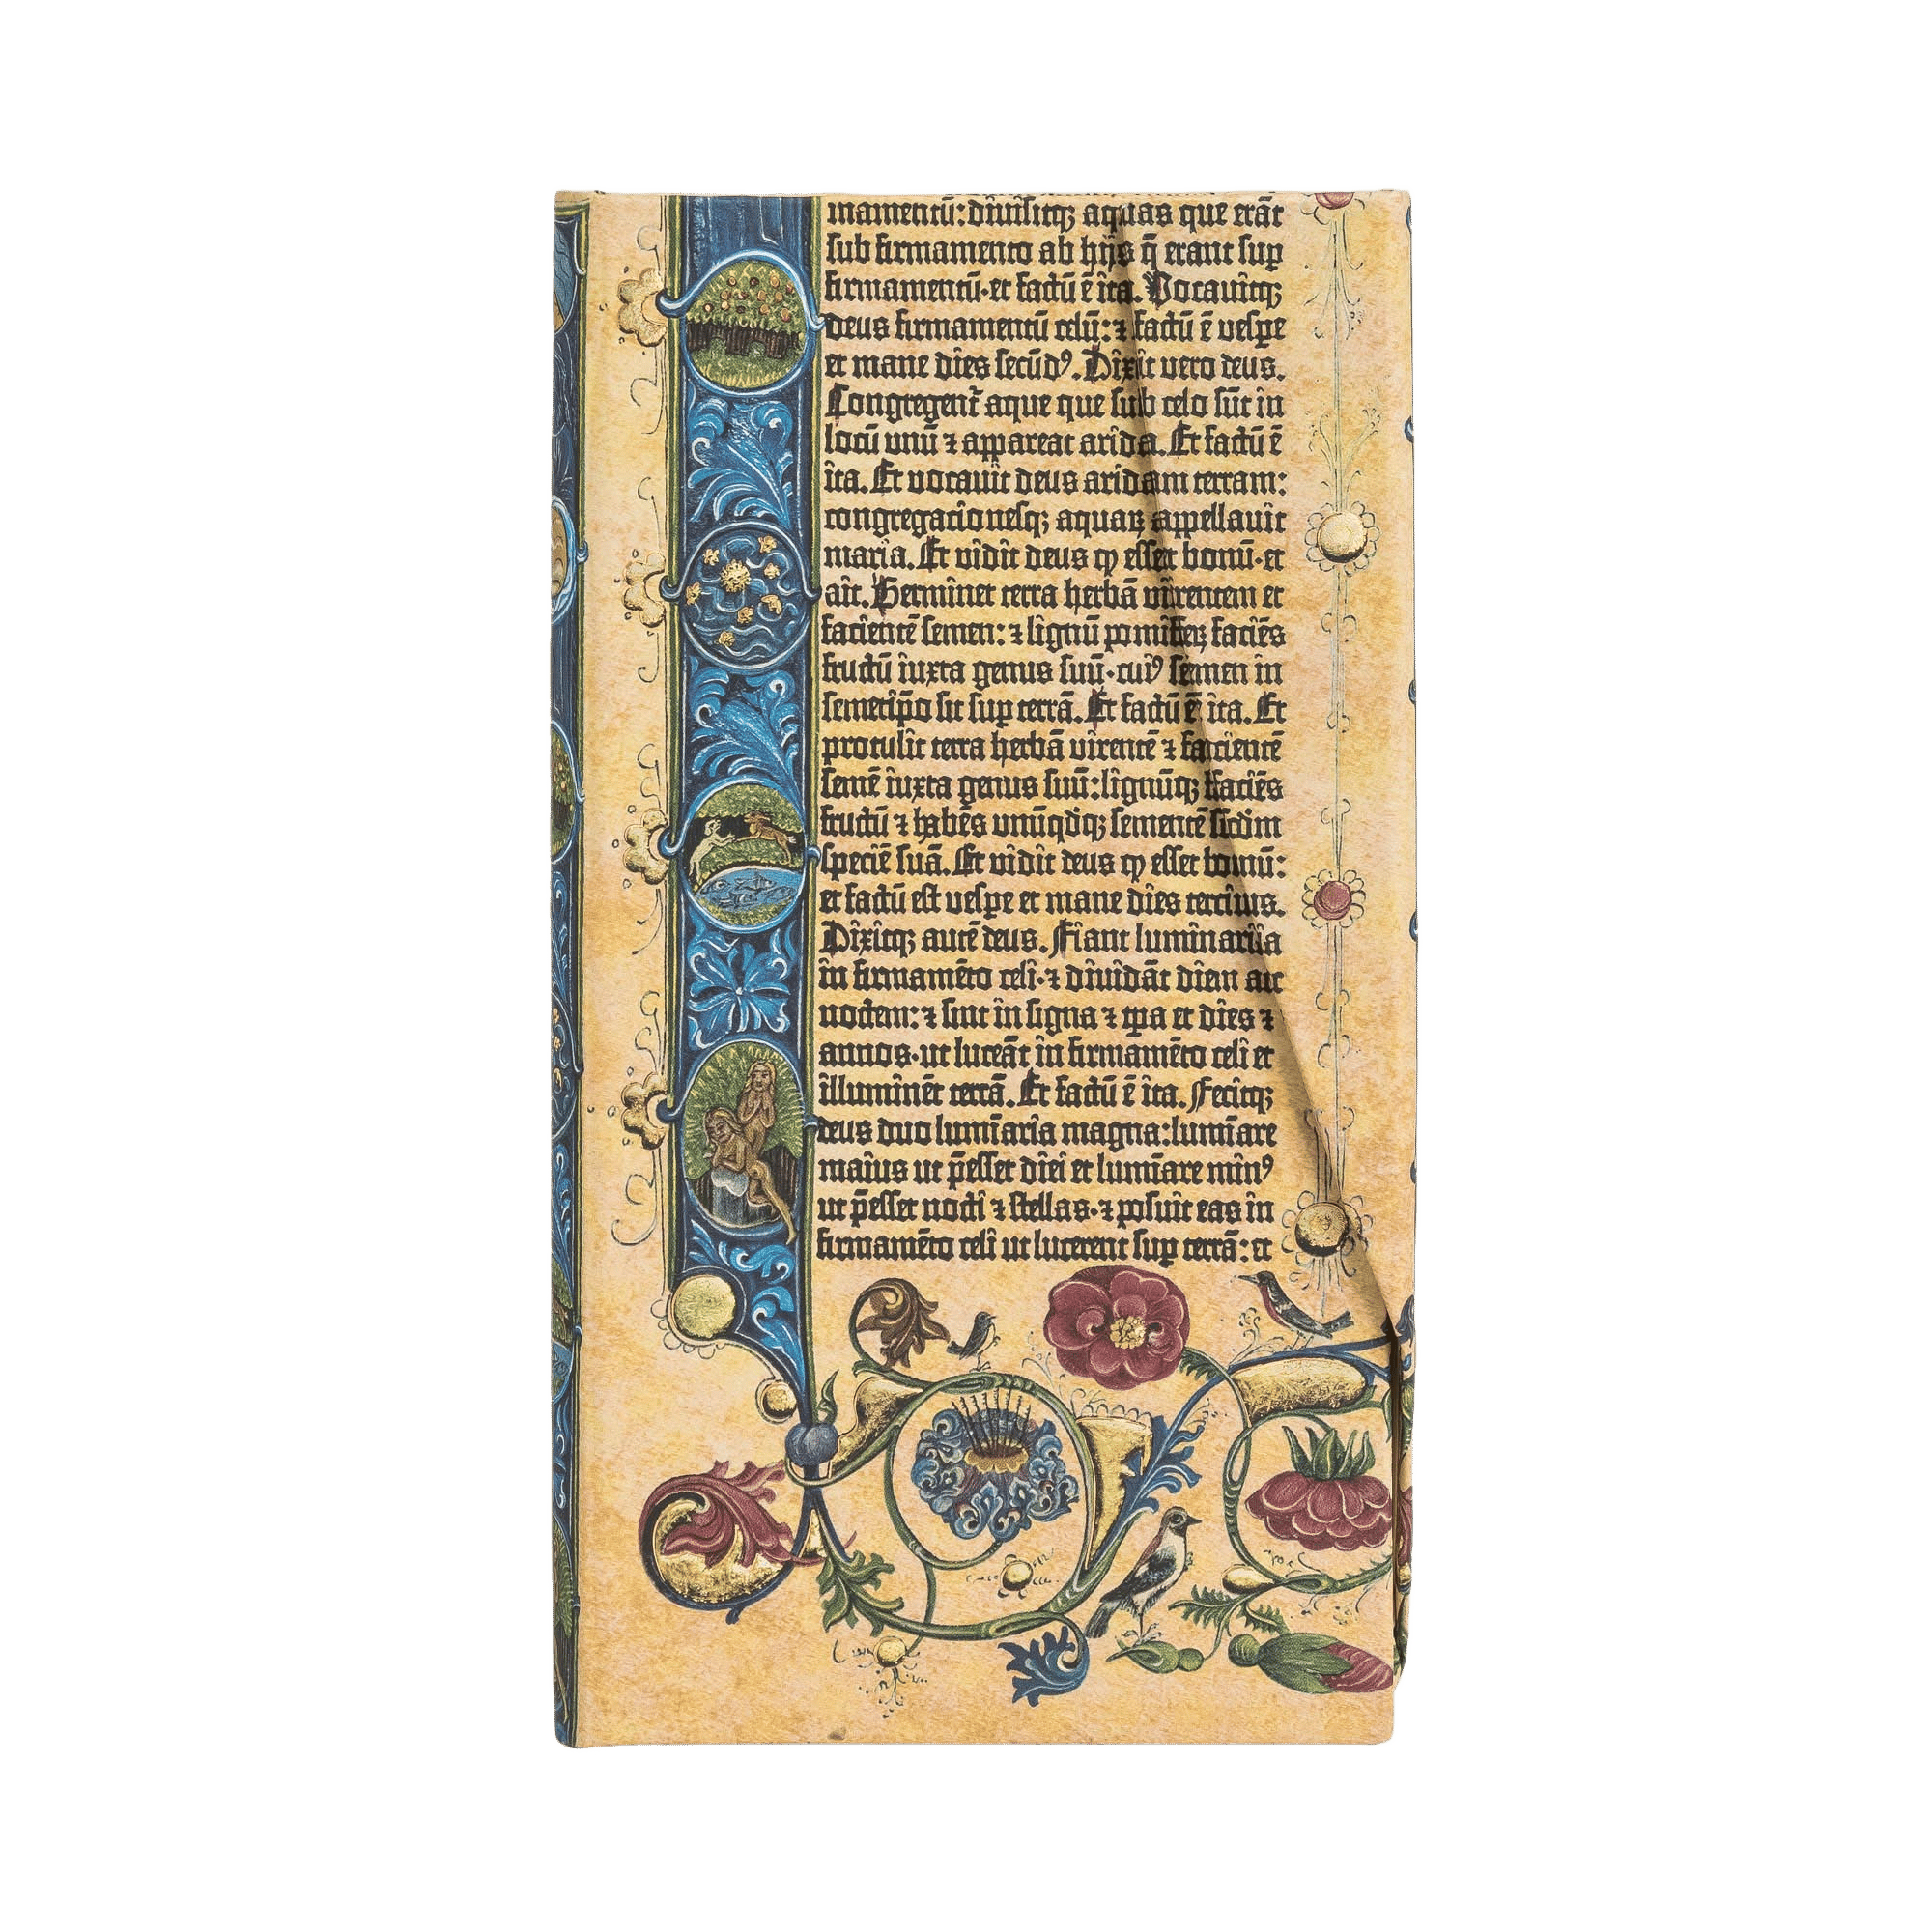 mamentū: diuisitq; aquas que erāt
sub firmamento ab hijs q̄ erant sup
firmamentū · et factū ē ita. Vocauitq;
deus firmamentū celū: ⁊ factū ē vespe
et mane dies secūdꝰ. Dixit vero deus.
Congregent̄ aque que sub celo sūt in
locū unū ⁊ appareat arida. Et factū ē
ita. Et vocauit deus aridam terram:
congregacionesq; aquaꝝ appellauit
maria. Et vidit deus ꝙ esset bonū · et
ait. Germinet terra herbā virentem et
facientē semen: ⁊ lignū pomiferꝫ faciēs
fructū iuxta genus suū · cuiꝰ semen in
semetip̄o sit sup terrā. Et factū ē ita. Et
protulit terra herbā virentē ⁊ facientē
semē iuxta genus suū: lignūq; faciēs
fructū ⁊ habēs unūqdq; sementē scdm
speciē suā. Et vidit deus ꝙ esset bonū:
et factū est vespe et mane dies tercius.
Dixitq; autē deus. Fiant luminaria
in firmamēto celi · ⁊ diuidāt diem ac
noctem: ⁊ sint in signa ⁊ tp̄a et dies ⁊
annos · ut luceāt in firmamēto celi et
illuminēt terrā. Et factū ē ita. Fecitq;
deus duo lumīaria magna: lumīare
maius ut p̄esset diei et lumīare minꝰ
ut p̄esset nocti ⁊ stellas · ⁊ posuit eas in
firmamēto celi ut lucerent sup terrā: et